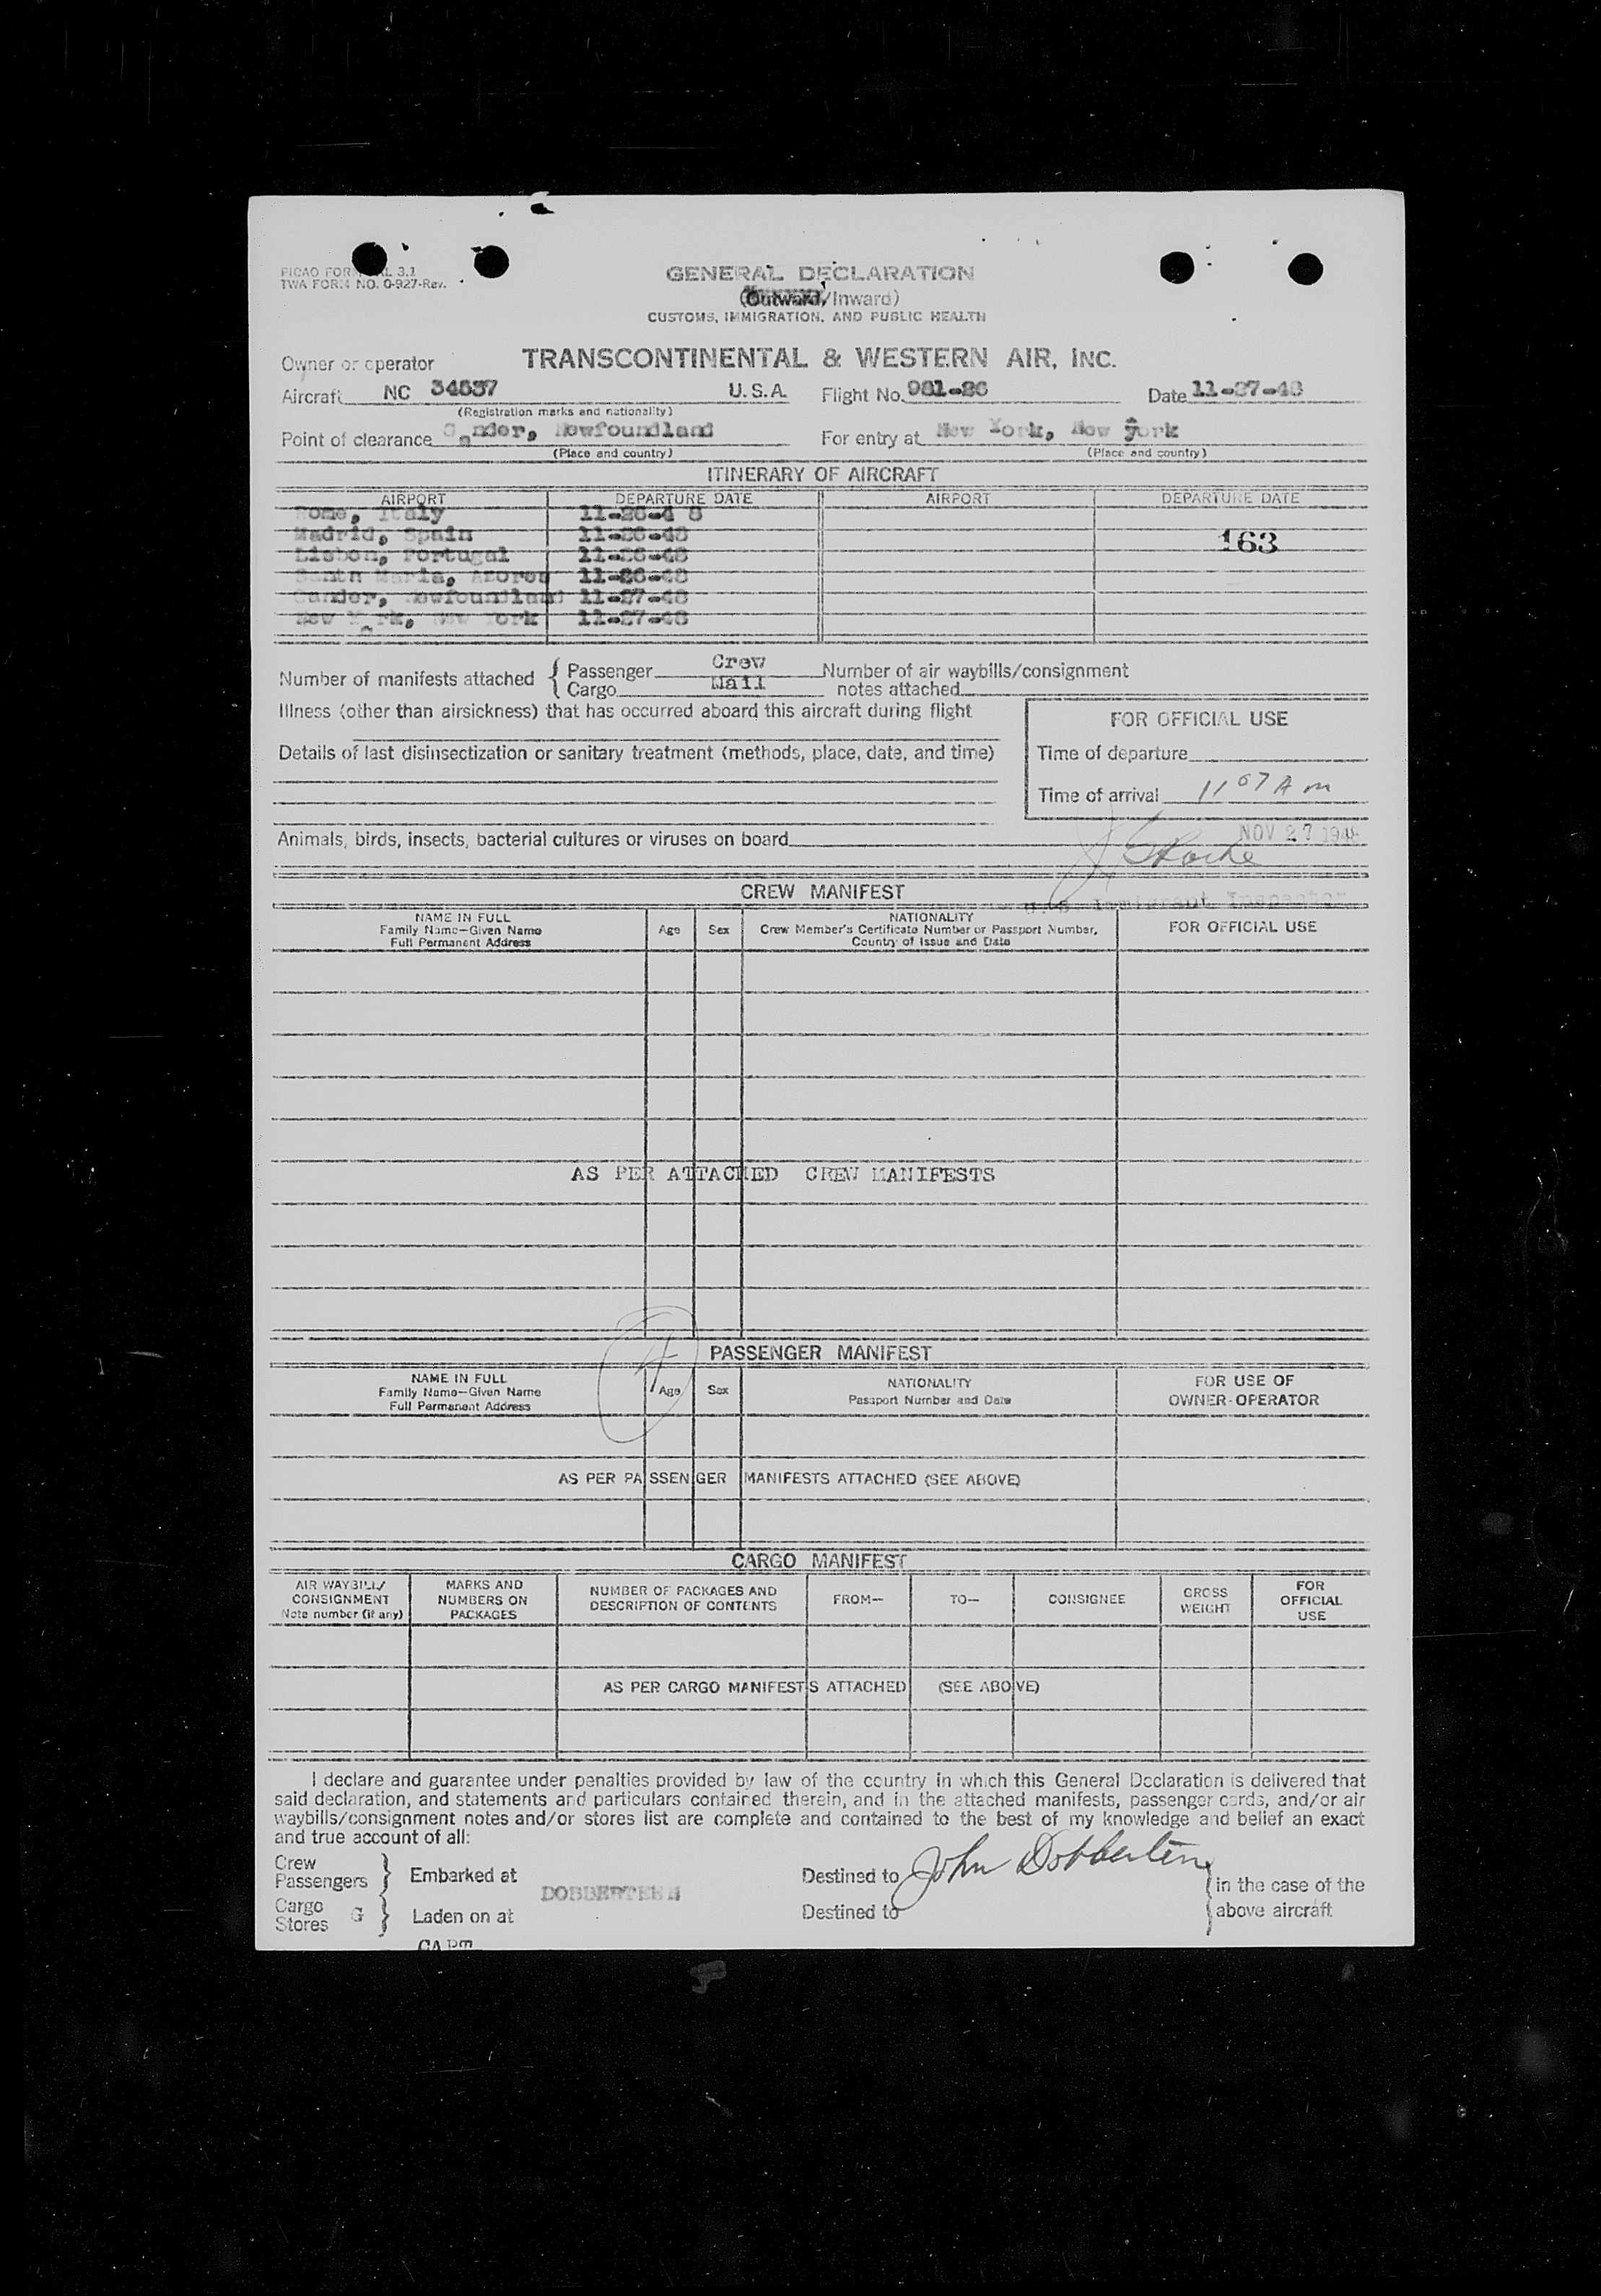 PICAO FORM AL 3.1
TWA FORM NO. 0-927-Rev.
GENERAL DECLARATION
(Outward/Inward)
CUSTOMS, IMMIGRATION, AND PUBLIC HEALTH
Owner or operator TRANSCONTINENTAL & WESTERN AIR, INC.
Aircraft NC 34537 U.S.A. Flight No. 981-26 Date 11-27-48
(Registration marks and nationality)
Point of clearance Gander, Newfoundland For entry at New York, New York
(Place and country) (Place and country)
ITINERARY OF AIRCRAFT
AIRPORT DEPARTURE DATE AIRPORT DEPARTURE DATE
Rome, Italy 11-26-4 8
Madrid, Spain 11-26-48 163
Lisbon, Portugal 11-26-48
Santa Maria, Azores 11-26-48
Gander, Newfoundland 11-27-48
New York, New York 11-27-48
Number of manifests attached { Passenger Crew Number of air waybills/consignment
Cargo Mail notes attached
Illness (other than airsickness) that has occurred aboard this aircraft during flight
FOR OFFICIAL USE
Details of last disinsectization or sanitary treatment (methods, place, date, and time)
Time of departure
Time of arrival 11 07 A m
Animals, birds, insects, bacterial cultures or viruses on board
NOV 27 1948
U.S. Immigrant Inspector
CREW MANIFEST
NAME IN FULL Age Sex NATIONALITY FOR OFFICIAL USE
Family Name—Given Name Crew Member's Certificate Number or Passport Number,
Full Permanent Address Country of Issue and Date
AS PER ATTACHED CREW MANIFESTS
PASSENGER MANIFEST
NAME IN FULL Age Sex NATIONALITY FOR USE OF
Family Name—Given Name Passport Number and Date OWNER-OPERATOR
Full Permanent Address
AS PER PASSENGER MANIFESTS ATTACHED (SEE ABOVE)
CARGO MANIFEST
AIR WAYBILL/ MARKS AND NUMBER OF PACKAGES AND FROM— TO— CONSIGNEE GROSS FOR
CONSIGNMENT NUMBERS ON DESCRIPTION OF CONTENTS WEIGHT OFFICIAL
Note number (if any) PACKAGES USE
AS PER CARGO MANIFESTS ATTACHED (SEE ABOVE)
I declare and guarantee under penalties provided by law of the country in which this General Declaration is delivered that
said declaration, and statements and particulars contained therein, and in the attached manifests, passenger cards, and/or air
waybills/consignment notes and/or stores list are complete and contained to the best of my knowledge and belief an exact
and true account of all:
Crew
Passengers } Embarked at Destined to John Dobberteen in the case of the
DOBBERTEEN
Cargo
Stores G } Laden on at Destined to above aircraft
CAPT